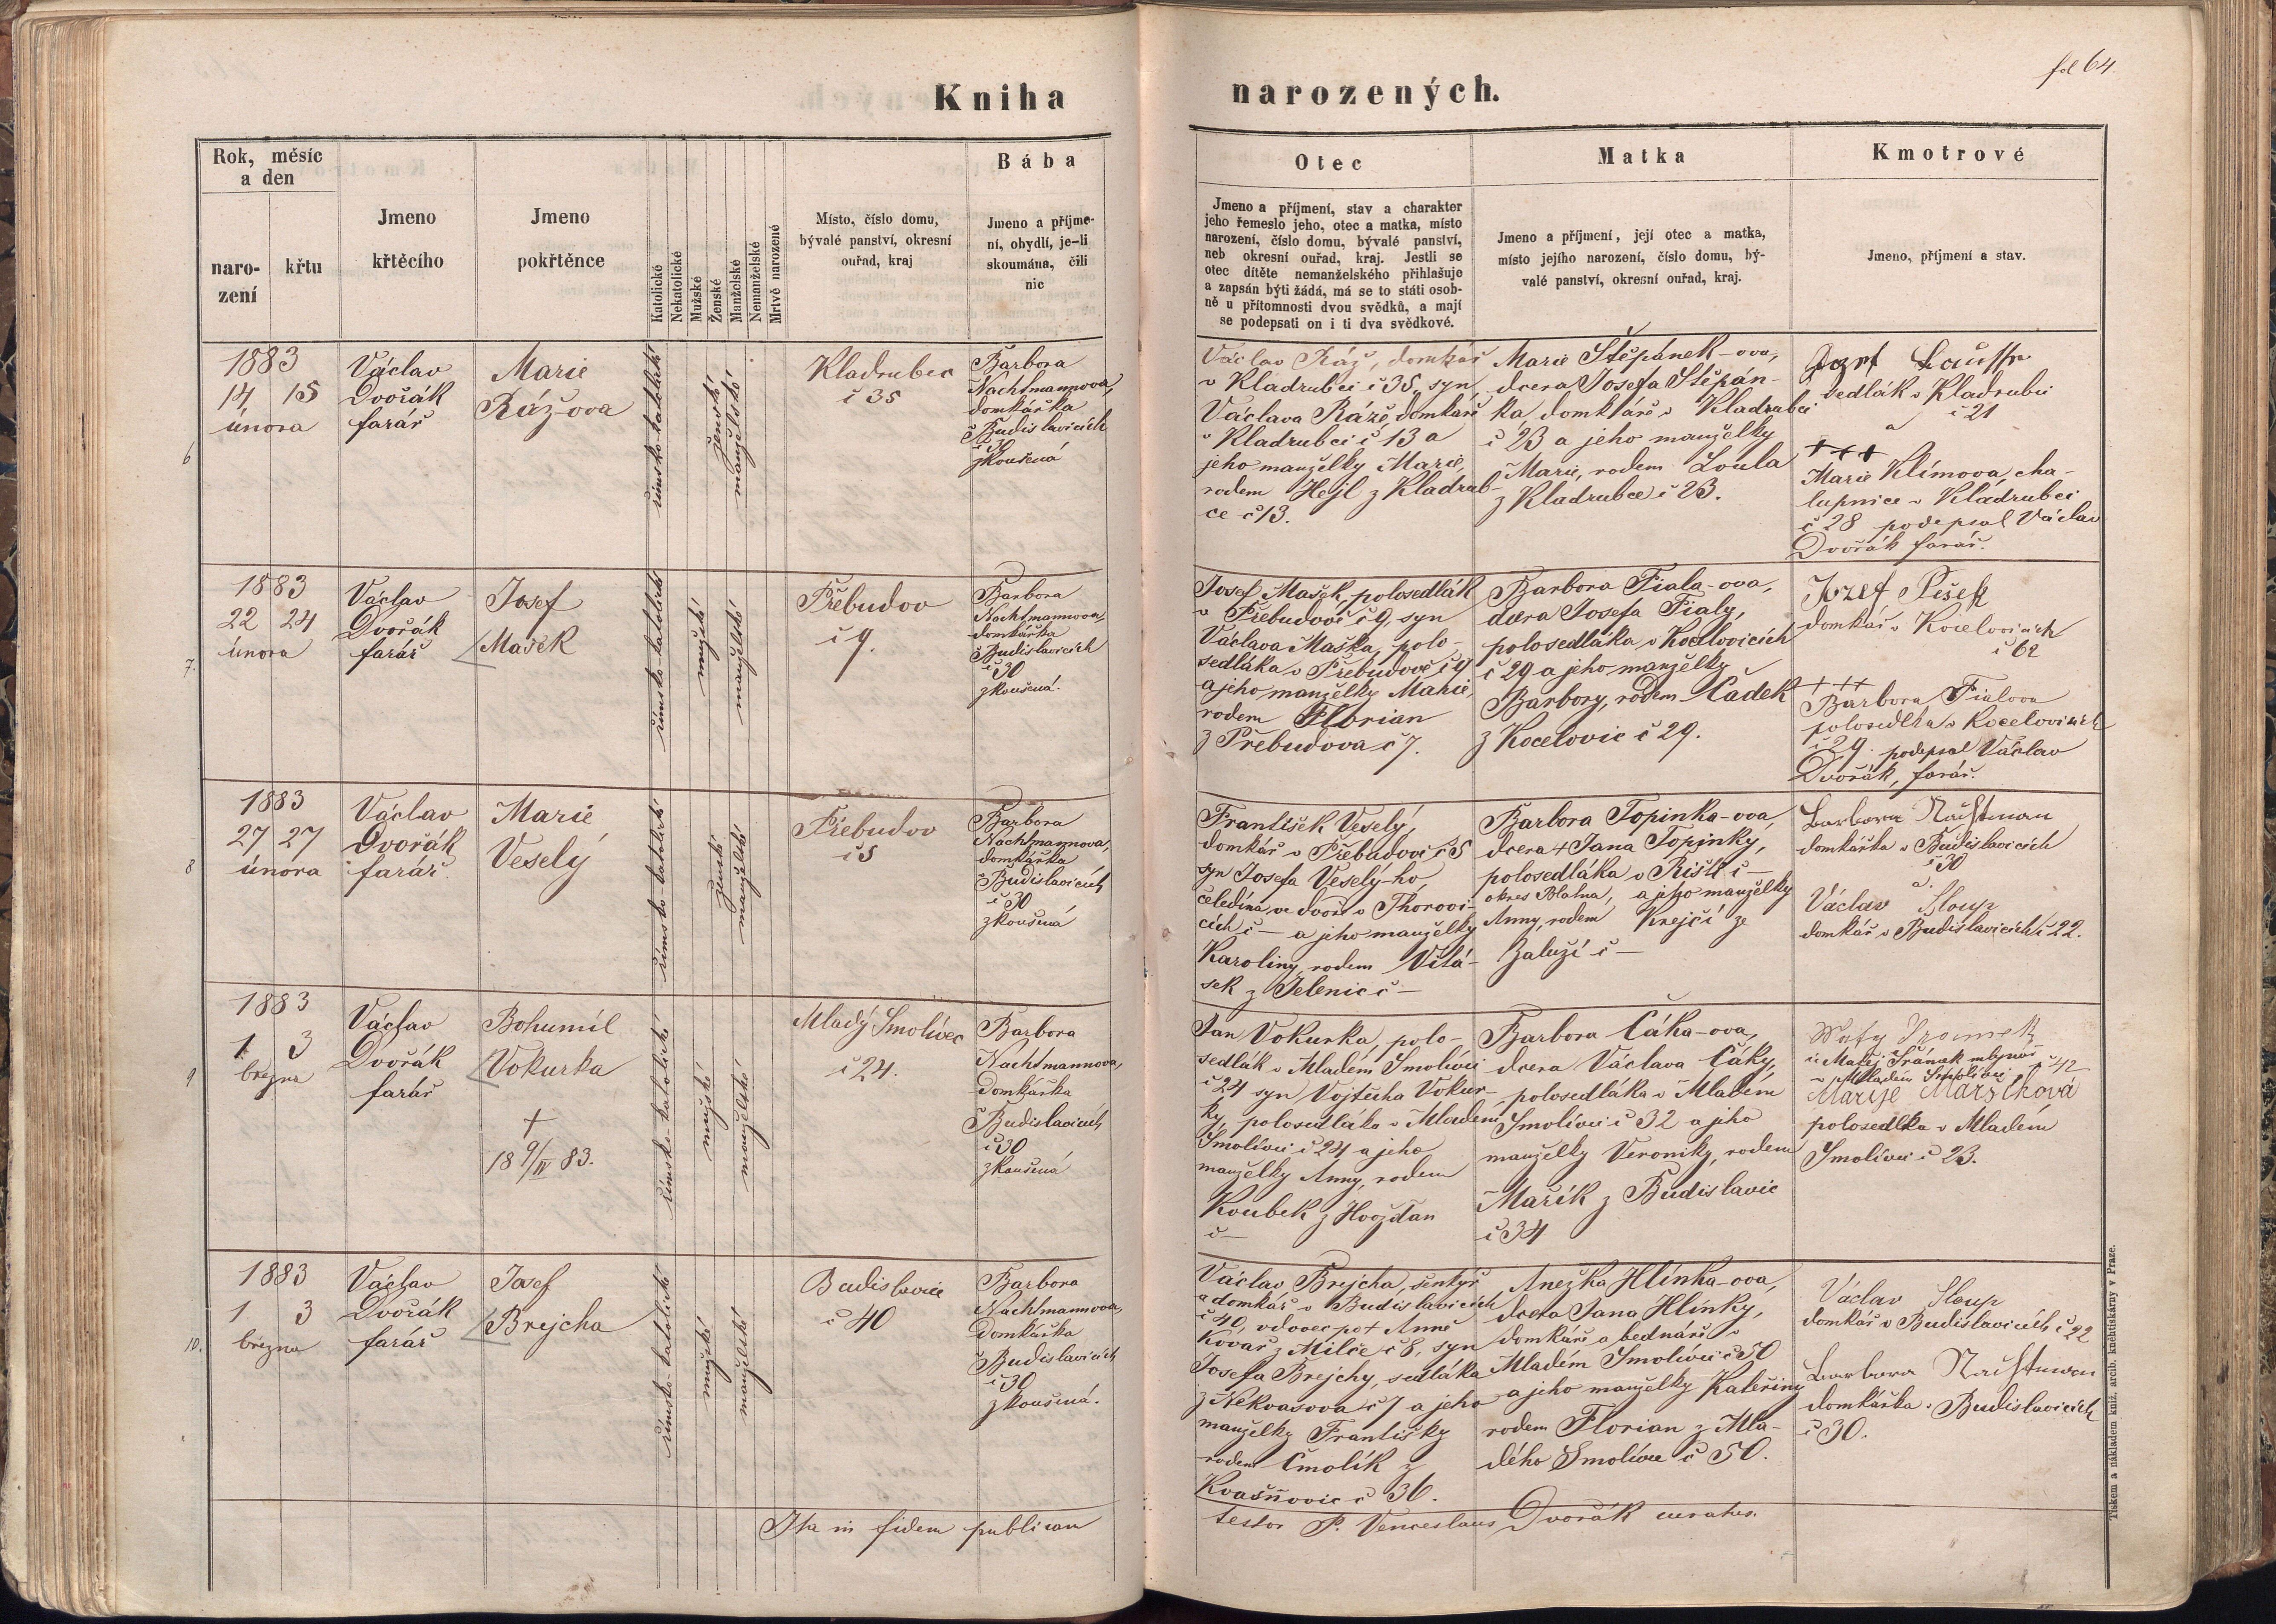 fol 64.
Kniha narozených.
Rok, měsíc
a den
naro-
zení
křtu
Jmeno
křtěcího
Jmeno
pokřtěnce
Katolické
Nekatolické
Mužské
Ženské
Manželské
Nemanželské
Mrtvě narozené
Místo, číslo domu,
bývalé panství, okresní
ouřad, kraj
Bába
Jmeno a příjme-
ní, obydlí, je-li
skoumána, čili
nic
Otec
Jmeno a příjmení, stav a charakter
jeho řemeslo jeho, otec a matka, místo
narození, číslo domu, bývalé panství,
neb okresní ouřad, kraj. Jestli se
otec dítěte nemanželského přihlašuje
a zapsán býti žádá, má se to státi osob-
ně u přítomnosti dvou svědků, a mají
se podepsati on i ti dva svědkové.
Matka
Jmeno a příjmení, její otec a matka,
místo jejího narození, číslo domu, bý-
valé panství, okresní ouřad, kraj.
Kmotrové
Jmeno, příjmení a stav.
6
1883
14 15
února
Václav
Dvořák
farář
Marie
Ráž-ova
římsko-katolické
ženské
manželské
Kladrubec
č 35
Barbora
Nachtmannova,
domkářka
v Budislavicích
č 30
zkoušená
Václav Ráž, domkář
v Kladrubci č 35, syn
Václava Ráže, domkáře
v Kladrubci č 13 a
jeho manželky Marie,
rodem Hejl z Kladrub-
ce č 13.
Marie Štěpánek-ova,
dcera Josefa Štěpán-
ka, domkáře v Kladrubci
č 23 a jeho manželky
Marie, rodem Loula
z Kladrubce č 23.
Jozef
sedlák v Kladrubci
č 21
a
+++
Marie Klímova, cha-
lupnice v Kladrubci
č 28 podepsal Václav
Dvořák farář.
7.
1883
22 24
února
Václav
Dvořák
farář
Josef
Mašek
římsko-katolické
mužské
manželské
Přebudov
č 9.
Barbora
Nachtmannova,
domkářka
v Budislavicích
č 30
zkoušená.
Josef Mašek, polosedlák
v Přebudově č 9, syn
Václava Maška, polo-
sedláka v Přebudově č 9
a jeho manželky Marie,
rodem Florian
z Přebudova č 7.
Barbora Fiala-ova,
dcera Josefa Fialy,
polosedláka v Kocelovicích
č 29 a jeho manželky
Barbory, rodem Čadek
z Kocelovic č 29.
Jozef Pišek
domkář v Kocelovicích
č 62
+++
Barbora Fialova
polosedlka v Kocelovicích
č 29. podepsal Václav
Dvořák, farář.
8
1883
27 27
února
Václav
Dvořák
farář.
Marie
Veselý
římsko-katolické
ženské
manželské
Přebudov
č 5
Barbora
Nachtmannova,
domkářka
v Budislavicích
č 30
zkoušená
František Veselý,
domkář v Přebudově č 5
syn Josefa Veselý-ho
čeledína ve dvoře v Thořovi-
cích č — a jeho manželky
Karoliny, rodem Vitá-
sek z Jelenic č —
Barbora Topinka-ova,
dcera + Jana Topinky,
polosedláka v Rišti č —
okres Blatna, a jeho manželky
Anny, rodem Krejčí ze
Zaluží č —
Barbora Nachtman
domkářka v Budislavicích
č 30
a.
Václav Sloup
domkář v Budislavicích č 22.
9
1883
1 3
března
Václav
Dvořák
farář
Bohumil
Vokurka
+
18 9/IV 83.
římsko-katolické
mužské
manželské
Mladý Smolivec
č 24.
Barbora
Nachtmannova,
Domkářka
v Budislavicích
č 30
zkoušená
Jan Vokurka, polo-
sedlák v Mladém Smolivci
č 24 syn Vojtěcha Vokur-
ky, polosedláka v Mladém
Smolivci č 24 a jeho
manželky Anny, rodem
Koubek z Hvoždan
č —
Barbora Čáka-ova,
dcera Václava Čáky,
polosedláka v Mladém
Smolivci č 32 a jeho
manželky Veroniky, rodem
Mařík z Budislavic
č 34
č: Matěj Šrámek mlynář
v Mladém Smolivci č 42
Marije Maršíková
polosedlka v Mladém
Smolivci č 23.
10.
1883
1 3
března
Václav
Dvořák
farář
Josef
Brejcha
římsko-katolické
mužské
manželské
Budislavice
č 40
Barbora
Nachtmannova,
Domkářka
v Budislavicích
č 30
zkoušená.
Václav Brejcha, šentýř
a domkář v Budislavicích
č 40, vdovec po + Anně
Kovář z Milče č 8, syn
Josefa Brejchy, sedláka
z Nekvasova č 7 a jeho
manželky Františky
rodem Čmolík z
Kvasňovic č 36.
Anežka Hlínka-ova,
dcera Jana Hlínky,
domkáře a bednáře v
Mladém Smolivci č 50
a jeho manželky Kateřiny
rodem Florian z Mla-
dého Smolivce č 50.
Václav Sloup
domkář v Budislavicích č 22
Barbora Nachtman
domkářka v Budislavicích
č 30.
Ita in fidem publicam testor P. Venceslaus Dvořák curatus.
Tiskem a nákladem kníž. arcib. knihtiskárny v Praze.